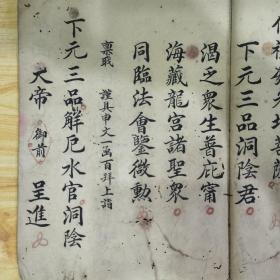 下元三品洞陰君
渴乏衆生普庇甯
海藏龍宮諸聖衆
同臨法會鑒微勳
稟職　謹具申文一函百拜上詣
下元三品解厄水官洞陰
大帝 御前 呈進